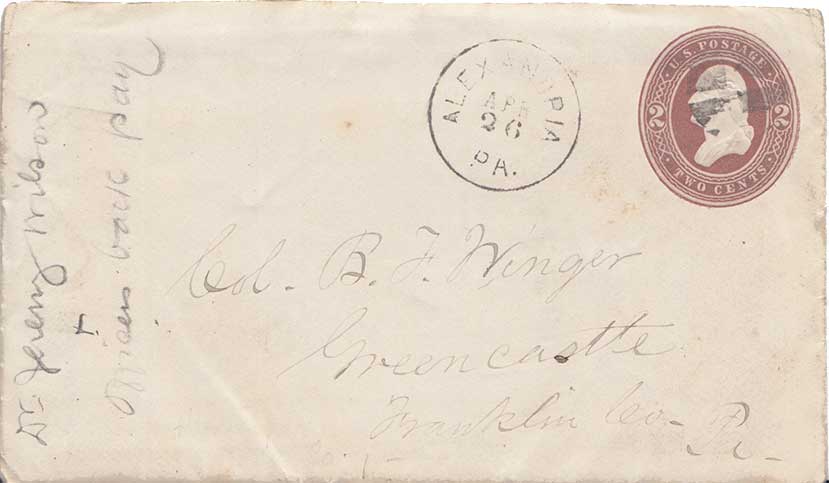 Dr. Jeremy Wilson
Officers back pay
ALEXANDRIA
APR
26
PA.
U.S. POSTAGE
2 2
TWO CENTS
Col. B. F. Winger
Greencastle
Franklin Co. Pa.